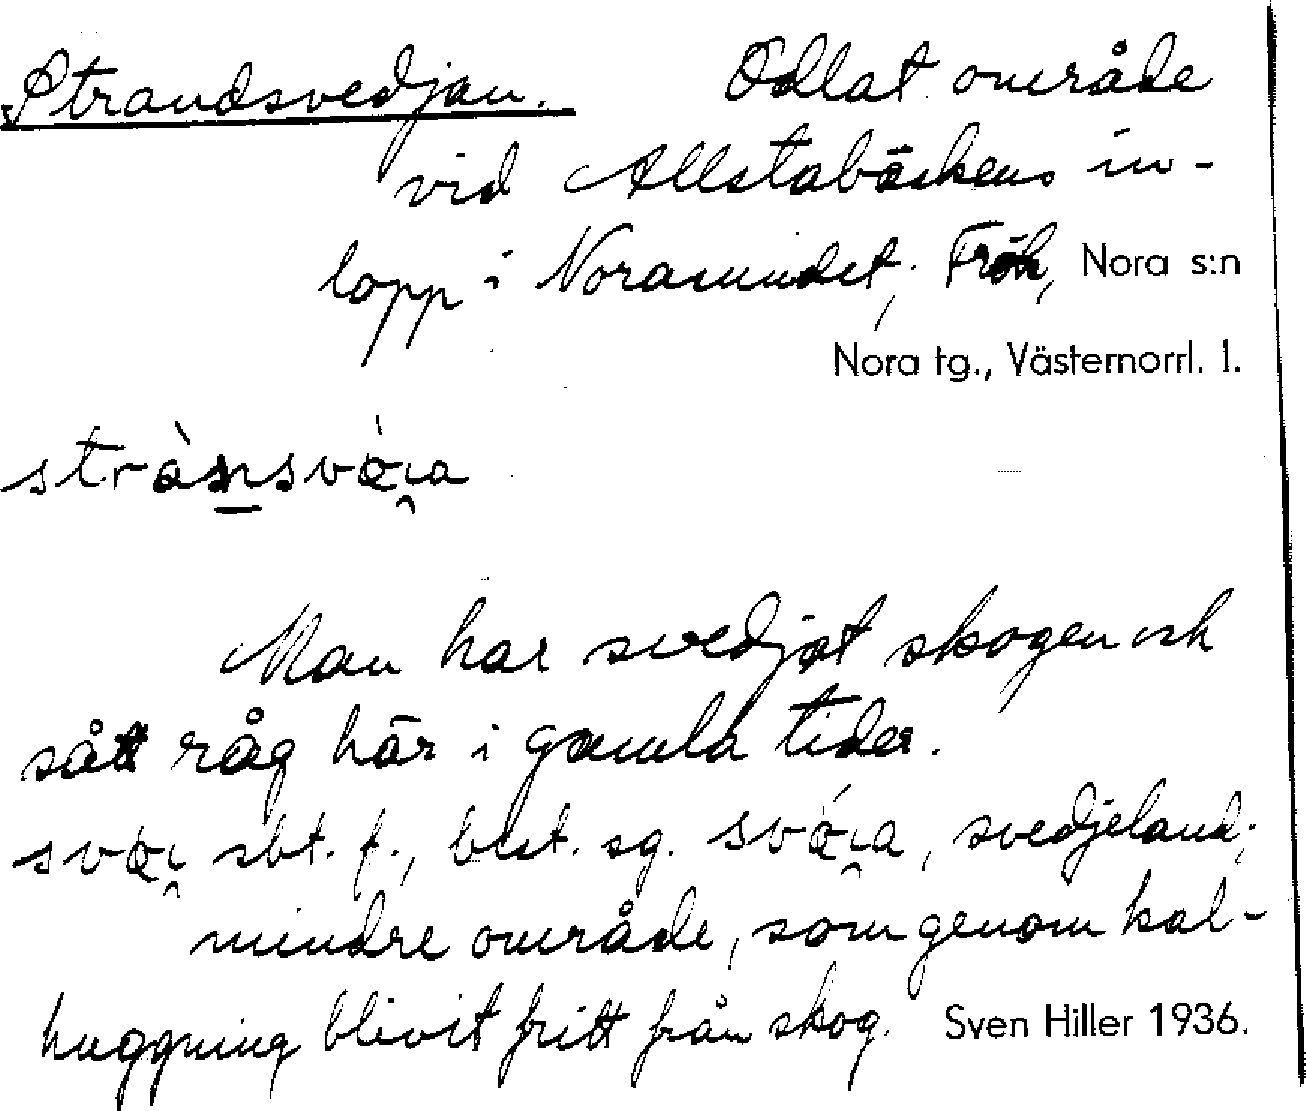 Strandsvedjan. Odlat område
vid Allstabäckens in-
lopp i Norasundet, Frök, Nora s:n
Nora tg., Västernorrl. l.
Man har svedjat skogen och
sått råg här i gamla tider.
sbt. f., best. sg. , svedjeland;
mindre område, som genom kal-
huggning blivit fritt från skog. Sven Hiller 1936.